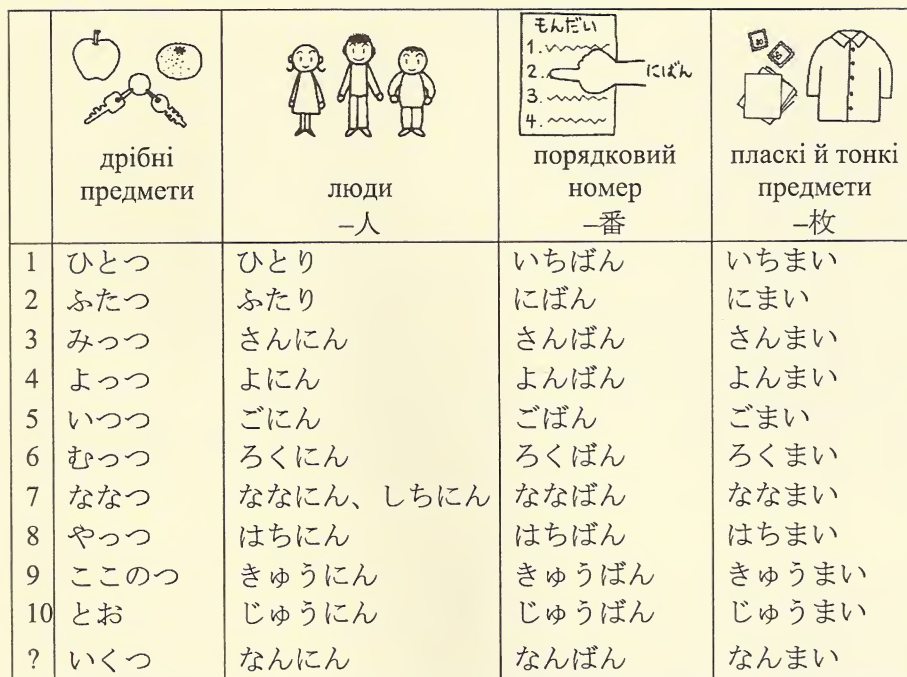 もんだい
1.
2.
3.
4.
にばん
дрібні предмети
люди
–人
порядковий номер
–番
пласкі й тонкі предмети
–枚
1 ひとつ ひとり いちばん いちまい
2 ふたつ ふたり にばん にまい
3 みっつ さんにん さんばん さんまい
4 よっつ よにん よんばん よんまい
5 いつつ ごにん ごばん ごまい
6 むっつ ろくにん ろくばん ろくまい
7 ななつ ななにん、しちにん ななばん ななまい
8 やっつ はちにん はちばん はちまい
9 ここのつ きゅうにん きゅうばん きゅうまい
10 とお じゅうにん じゅうばん じゅうまい
? いくつ なんにん なんばん なんまい